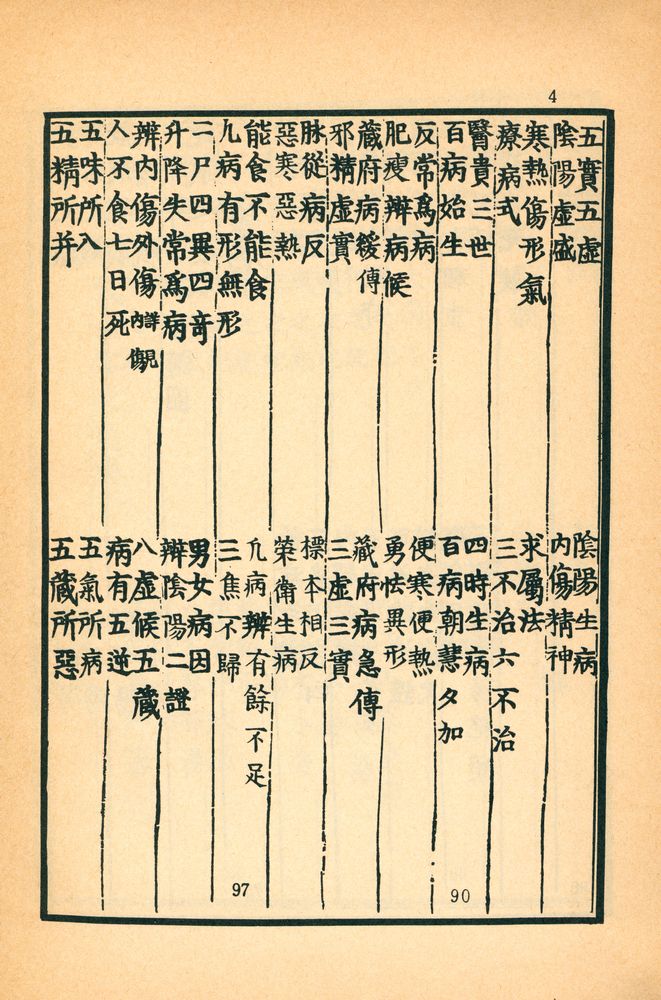 4
五實五虛
陰陽生病
陰陽虛盛
內傷精神
寒熱傷形氣
求屬法
療病式
三不治六不治
醫貴三世
四時生病
百病始生
百病朝慧夕加
反常爲病
便寒便熱
肥瘦辨病候
勇怯異形
藏府病緩傳
藏府病急傳
邪精虛實
三虛三實
脉從病反
標本相反
惡寒惡熱
榮衛生病
能食不能食
凢病辨有餘不足
凢病有形無形
三焦不歸
二尸四異四竒
男女病因
升降失常爲病
辨陰陽二證
辨內傷外傷詳見內傷
八虛候五藏
人不食七日死
病有五逆
五味所入
五氣所病
五精所并
五藏所惡
90
97